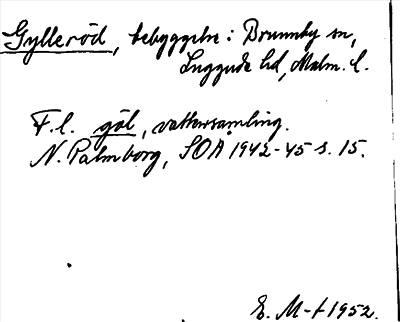 Gylleröd, bebyggelse i Brunnby sn,
Luggude hd, Malm. l.
F. l. göl, vattensamling.
N. Palmborg, SOÅ 1942-45 s. 15.
E. M-t 1952.